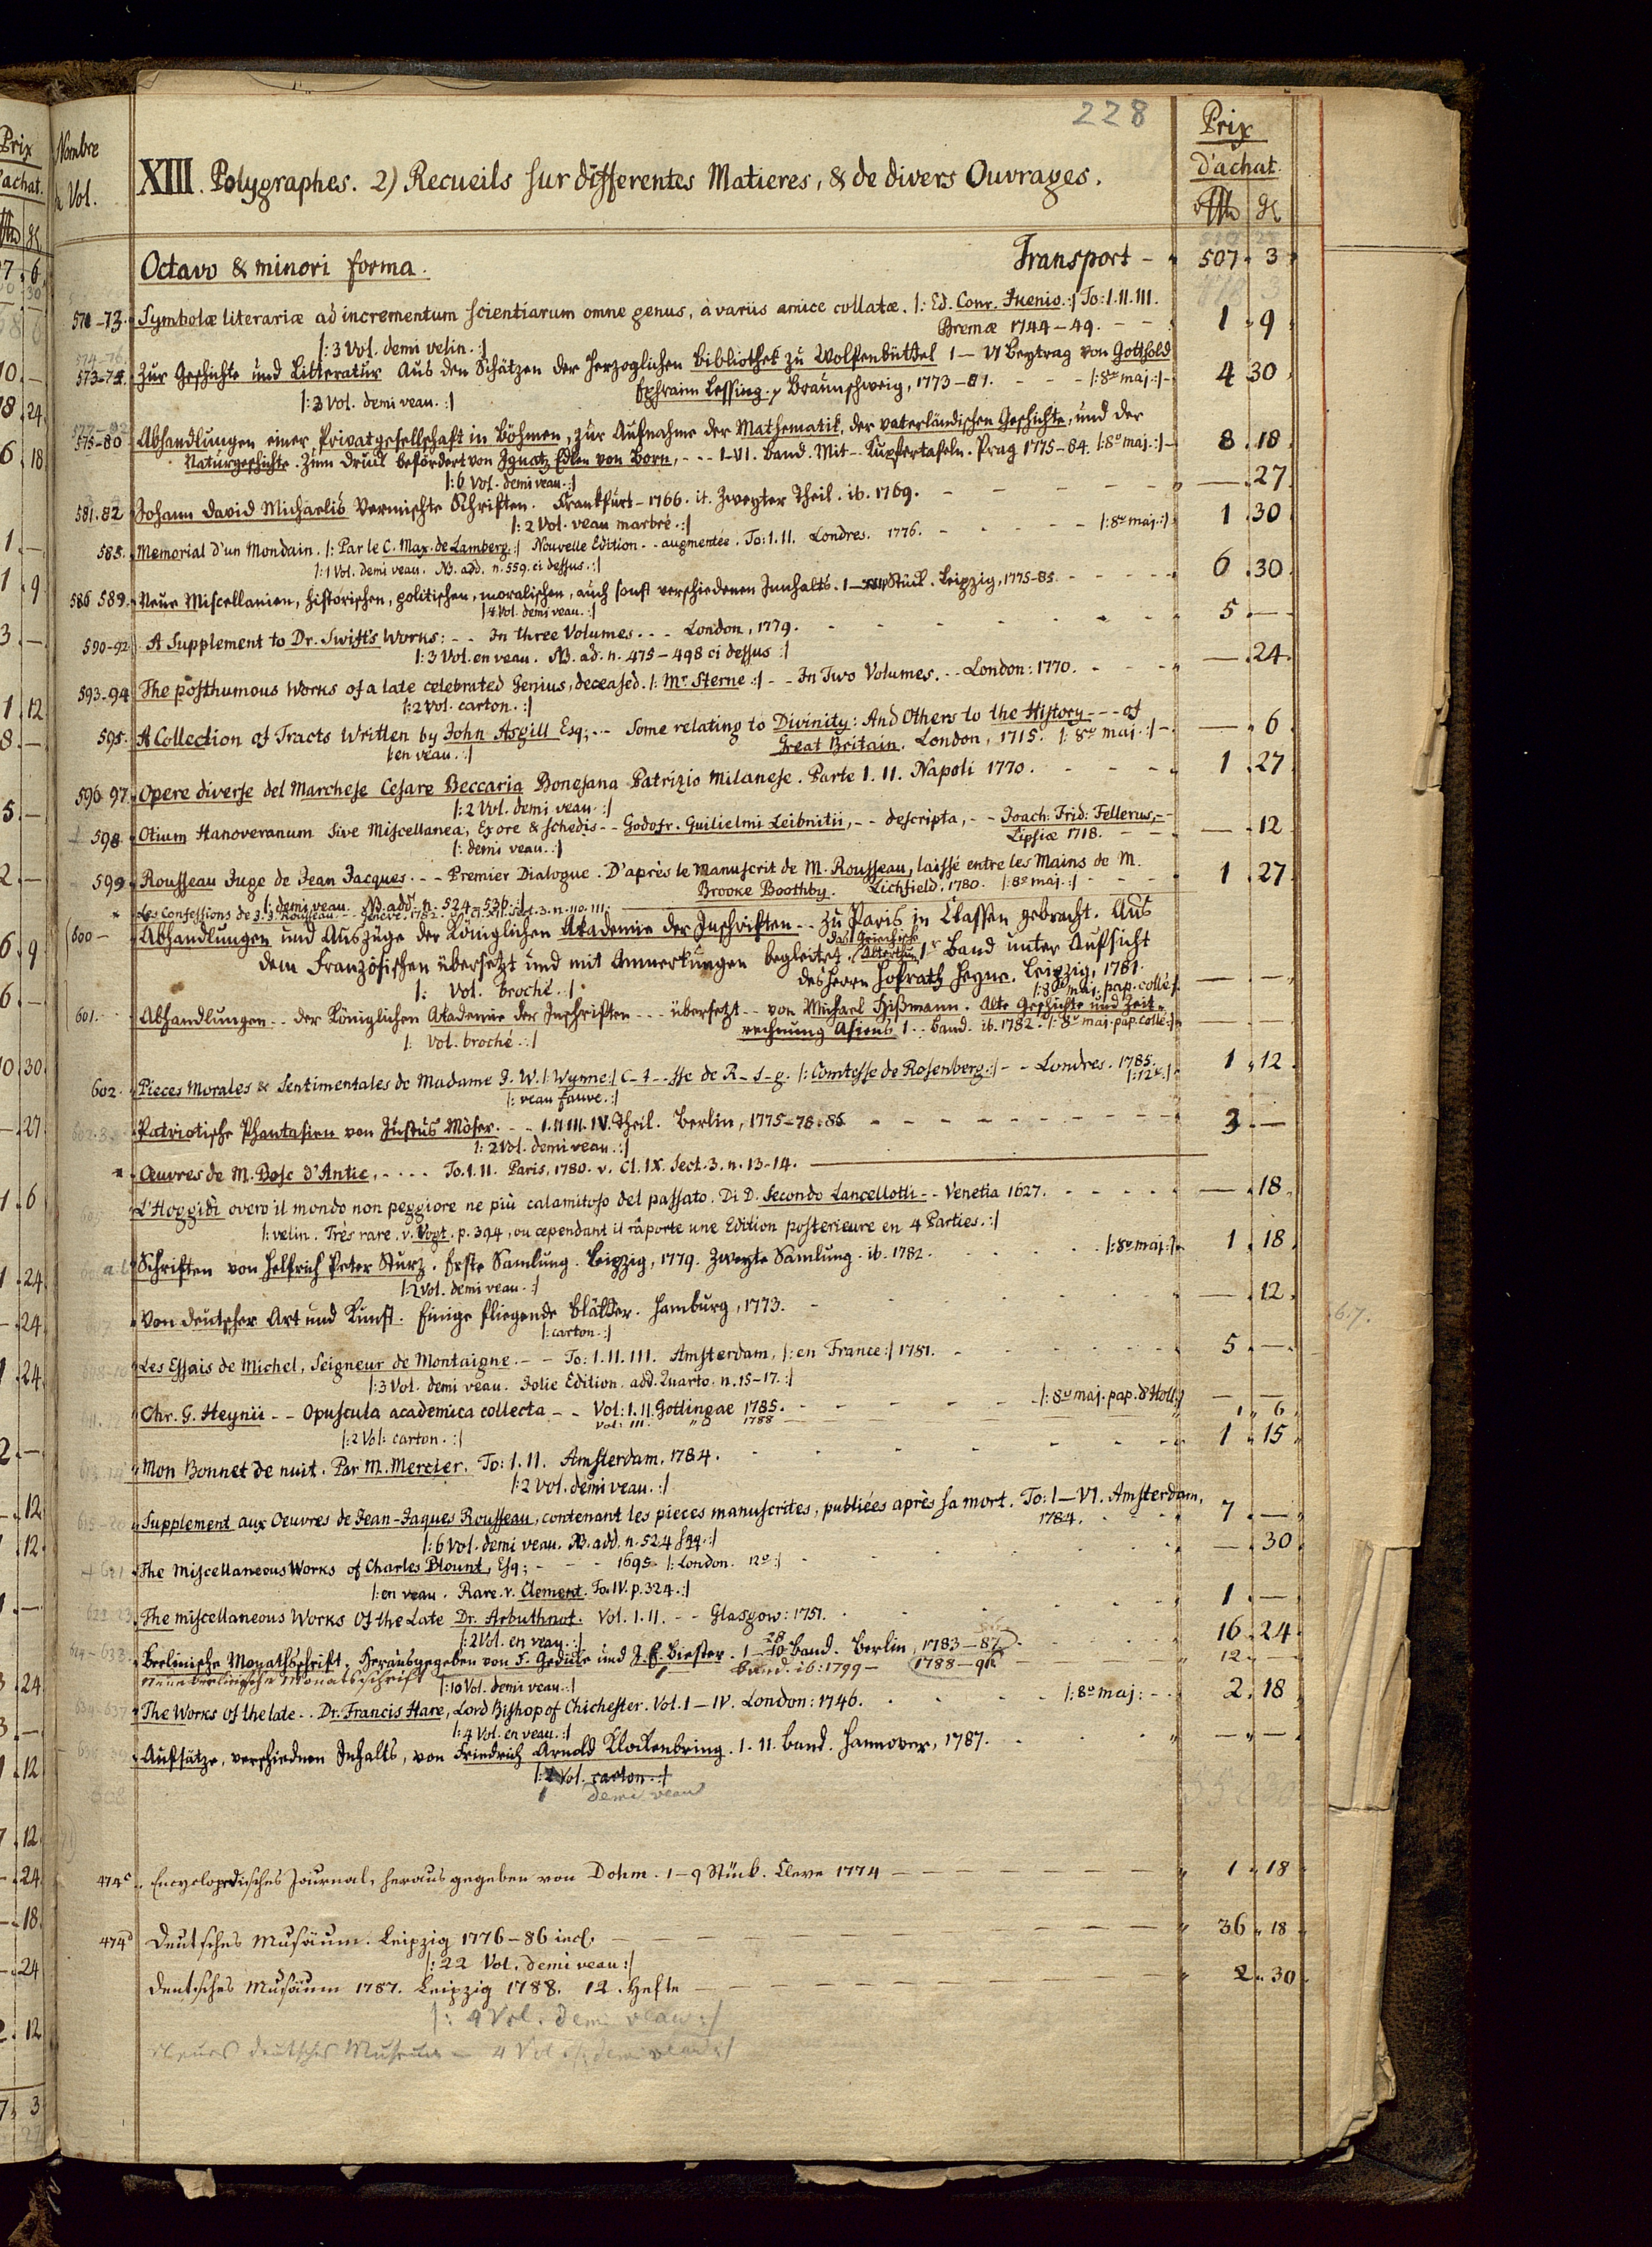 228
Nombre
d Vol.
XIII. Polygraphes. 2) Recueils sur differentes Matieres, & de divers Ouvrages.
Prix
d'achat.
Octavo & minori forma. Transport - 507 3
571-73. Symbolæ literariæ ad incrementum scientiarum omne genus, à variis amice collatæ. |: Ed. Conr. Ikenio :| To: I. II. III.
Bremæ 1744-49. - - 1 9
|: 3 Vol. demi velin. :|
574-76.
573-74. Zur Geschichte und Litteratur Aus den Schätzen der Herzoglichen Bibliothek zu Wolfenbüttel I - VI Beytrag von Gotthold
Ephraim Lessing. Braunschweig, 1773-81. - - - |: 8vo maj. :| - 4 30
|: 3 Vol. demi veau. :|
575-80 Abhandlungen einer Privatgesellschaft in Böhmen, zur Aufnahme der Mathematik, der vaterländischen Geschichte, und der
Naturgeschichte. Zum Druck befördert von Ignatz Edlen von Born, - - - I-VI. Band. Mit - - Kupfertafeln. Prag 1775-84. |: 8o maj. :| - 8 18
|: 6 Vol. demi veau. :|
581.82 Johann David Michaelis Vermischte Schriften. Frankfurt - 1766. it. Zweyter Theil. ib. 1769. - - - - - - — 27
|: 2 Vol. veau marbré. :|
585. Memorial d'un Mondain. |: Par le C. Max. de Lamberg. :| Nouvelle Edition - - augmentée. To: I. II. Londres. 1776. - - - - - |: 8o maj. :| 1 30
|: 1 Vol. demi veau. NB. add. n. 559. ci dessus. :|
586 589. Neue Miscellanien, historischen, politischen, moralischen, auch sonst verschiedenen Innhalts. Stück. Leipzig, 1775-85. - - - - - 6 30
|: 4 Vol. demi veau. :|
590-92. A Supplement to Dr. Swift's Works: - - In three Volumes. - - London, 1779. - - - - - - 5 —
|: 3 Vol. en veau. NB. ad. n. 475-498 ci dessus :|
593-94 The posthumous Works of a late celebrated Genius, deceased. |: Mr. Sterne :| - - In Two Volumes. - - London: 1770. - - - - — 24
|: 2 Vol. carton. :|
595. A Collection of Tracts Written by John Asgill Esq; - - Some relating to Divinity: And Others to the History - - - of
Great Britain. London, 1715. |: 8vo maj. :| - — 6
|: en veau. :|
596 97. Opere diverse del Marchese Cesare Beccaria Bonesana Patrizio Milanese. Parte I. II. Napoli 1770. - - - - 1 27
|: 2 Vol. demi veau. :|
598. Otium Hanoveranum sive Miscellanea, Ex ore & schedis - - Godofr. Guilielmi Leibnitii, - - descripta, - - Joach: Frid: Fellerus, - -
Lipsiæ 1718. - - — 12
|: demi veau. :|
599 Rousseau Juge de Jean Jacques. - - Premier Dialogue. D'après le Manuscrit de M. Rousseau, laissé entre les Mains de M.
Brooke Boothby. Lichfield. 1780. |: 8o maj. :| - - - 1 27
|: demi veau. NB. add. n. 524-536 :|
* Les Confessions de J. J. Rousseau. - - Geneve. 1782. v. Cl. XII. Sect. 3. n. 110. 111.
600 - Abhandlungen und Auszüge der Königlichen Akademie der Inschriften - - zu Paris in Classen gebracht. Aus
dem Französischen übersetzt und mit Anmerkungen begleitet. Das Griechische Alterthum Ir Band unter Aufsicht
des Herrn Hofrath Heyne. Leipzig, 1781.
|: 8o maj. pap. collé :| — —
|: Vol. broché. :|
601. - Abhandlungen - - der Königlichen Akademie der Inschriften - - - übersetzt - - von Michael Hißmann. Alte Geschichte und Zeit-
rechnung Asiens I. - Band. ib. 1782. |: 8o maj. pap. collé :| — —
|: Vol. broché. :|
602. Pieces Morales & Sentimentales de Madame J. W. |: Wynne :| C-t--sse de R-s-g. |: Comtesse de Rosenberg. :| - - Londres. 1785. |: 12o. :| 1 12
|: veau fauve. :|
Patriotische Phantasien von Justus Möser. - - I. II. III. IV. Theil. Berlin, 1775-78.86 - - - - - - - 3 —
|: 2 Vol. demi veau. :|
* Œuvres de M. Bosc d'Antic, - - - - To. I. II. Paris, 1780. v. Cl. IX. Sect. 3. n. 13-14.
L'Hoggidi overo il mondo non peggiore ne più calamitoso del passato. Di D. Secondo Lancellotti - - Venetia 1627. - - - - — 18
|: velin. Très rare. v. Vogt. p. 394, ou cependant il raporte une Edition posterieure en 4 Parties. :|
Schriften von Helfrich Peter Sturz. Erste Samlung. Leipzig, 1779. Zweyte Samlung. ib. 1782. - - - - |: 8o maj. :| 1 18
|: 2 Vol. demi veau. :|
Von deutscher Art und Kunst. Einige fliegende Blätter. Hamburg, 1773. - - - - - — 12
|: carton. :|
Les Essais de Michel, Seigneur de Montaigne. - - To: I. II. III. Amsterdam, |: en France :| 1781. - - - - - 5 —
|: 3 Vol. demi veau. Jolie Edition. add. Quarto. n. 15-17. :|
Chr. G. Heynii - - Opuscula academica collecta - - Vol: I. II. Gottingae 1785. - - - - - |: 8vo maj. pap. d'Holl. :| — —
Vol: III. " 1788 1 6
|: 2 Vol: carton. :|
Mon Bonnet de nuit. Par M. Mercier. To: I. II. Amsterdam. 1784. - - - - - 1 15
|: 2 Vol. demi veau. :|
615-20 Supplement aux Oeuvres de Jean-Jaques Rousseau, contenant les pieces manuscrites, publiées après sa mort. To: I-VI. Amsterdam,
1784. - - - 7 —
|: 6 Vol. demi veau. NB. add. n. 524 sqq. :|
621 The Miscellaneous Works of Charles Blount, Esq; - - - 1695 |: London. 12o :| - - - — 30
|: en veau. Rare. v. Clement. To. IV. p. 324. :|
The miscellaneous Works Of the Late Dr. Arbuthnot. Vol. I. II. - - Glasgow: 1751. - - - - 1 —
|: 2 Vol. en veau. :|
624-633. Berlinische Monathsschrift. Herausgegeben von F. Gedike und J. E. Biester. 1-10 28 Band. Berlin, 1783-87. - - - 16 24
Neue Berlinische Monatsschrift Band. ib: 1799 - 1788-96 12 —
|: 10 Vol. demi veau. :|
634-637 The Works Of the late - - Dr. Francis Hare, Lord Bishop of Chichester. Vol. I-IV. London: 1746. - - - - |: 8o maj: - - 2 18
|: 4 Vol. en veau. :|
Aufsätze, verschiednen Inhalts, von Friedrich Arnold Klockenbring. I. II. Band. Hannover, 1787. - - - — —
|: 2 Vol. carton. :|
1 demi veau
474c. Encyclopedisches Journal, herausgegeben von Dohm. 1-9 Stück. Cleve 1774 - - - - - - 1 18
474d Deutsches Musäum. Leipzig 1776-86 incl. - - - - - - 36 18
|: 22 Vol. demi veau :|
Deutsches Musäum 1787. Leipzig 1788. 12. Hefte - - - - - - 2 30
|: 4 Vol. demi veau :|
Neues deutsches Museum - 4 Vol. |: demi veau :|